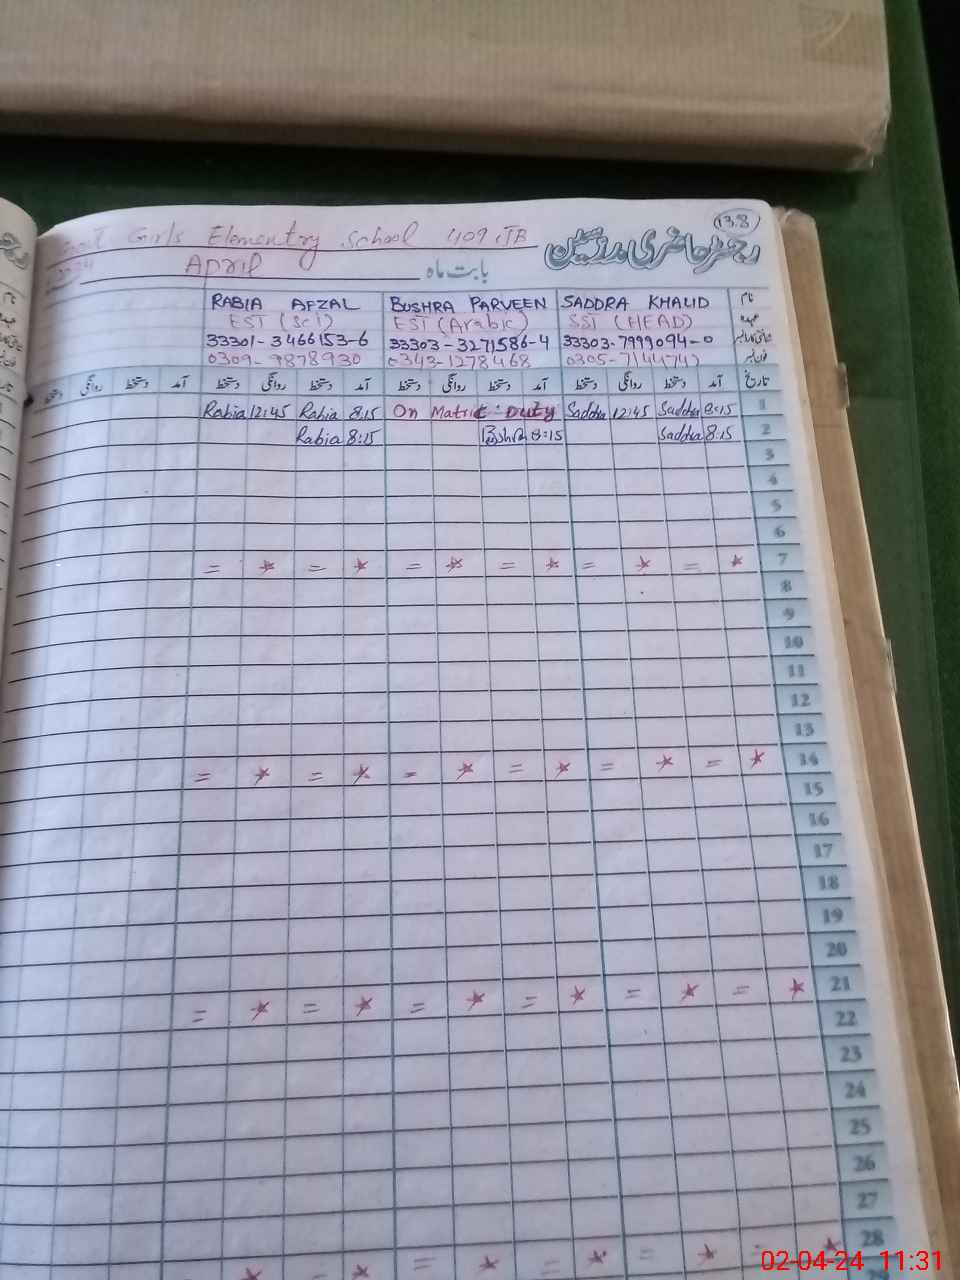 138
رجسٹر حاضری مدرسین
Govt Girls Elementry School 409 JB
April بابت ماہ
نام SADDRA KHALID BUSHRA PARVEEN RABIA AFZAL
عہدہ SST (HEAD) EST (Arabic) EST (Sci)
33303-7999094-0 33303-3271586-4 33301-3466153-6
فون نمبر 0343-1278468 0309-9878930
تاریخ آمد دستخط روانگی دستخط آمد دستخط روانگی دستخط آمد دستخط روانگی دستخط آمد دستخط روانگی دستخط
1 8:15 Saddra 12:45 Saddra On Matric Duty 8:15 Rabia 12:45 Rabia
2 8:15 Saddra 8:15 Bushra 8:15 Rabia
3
4
5
6
7 * = * = * = * = * = * =
8
9
10
11
12
13
14 * = * = * = * = * = * =
15
16
17
18
19
20
21 * = * = * = * = * = * =
22
23
24
25
26
27
28 * = * = * = * = * = *
02-04-24 11:31